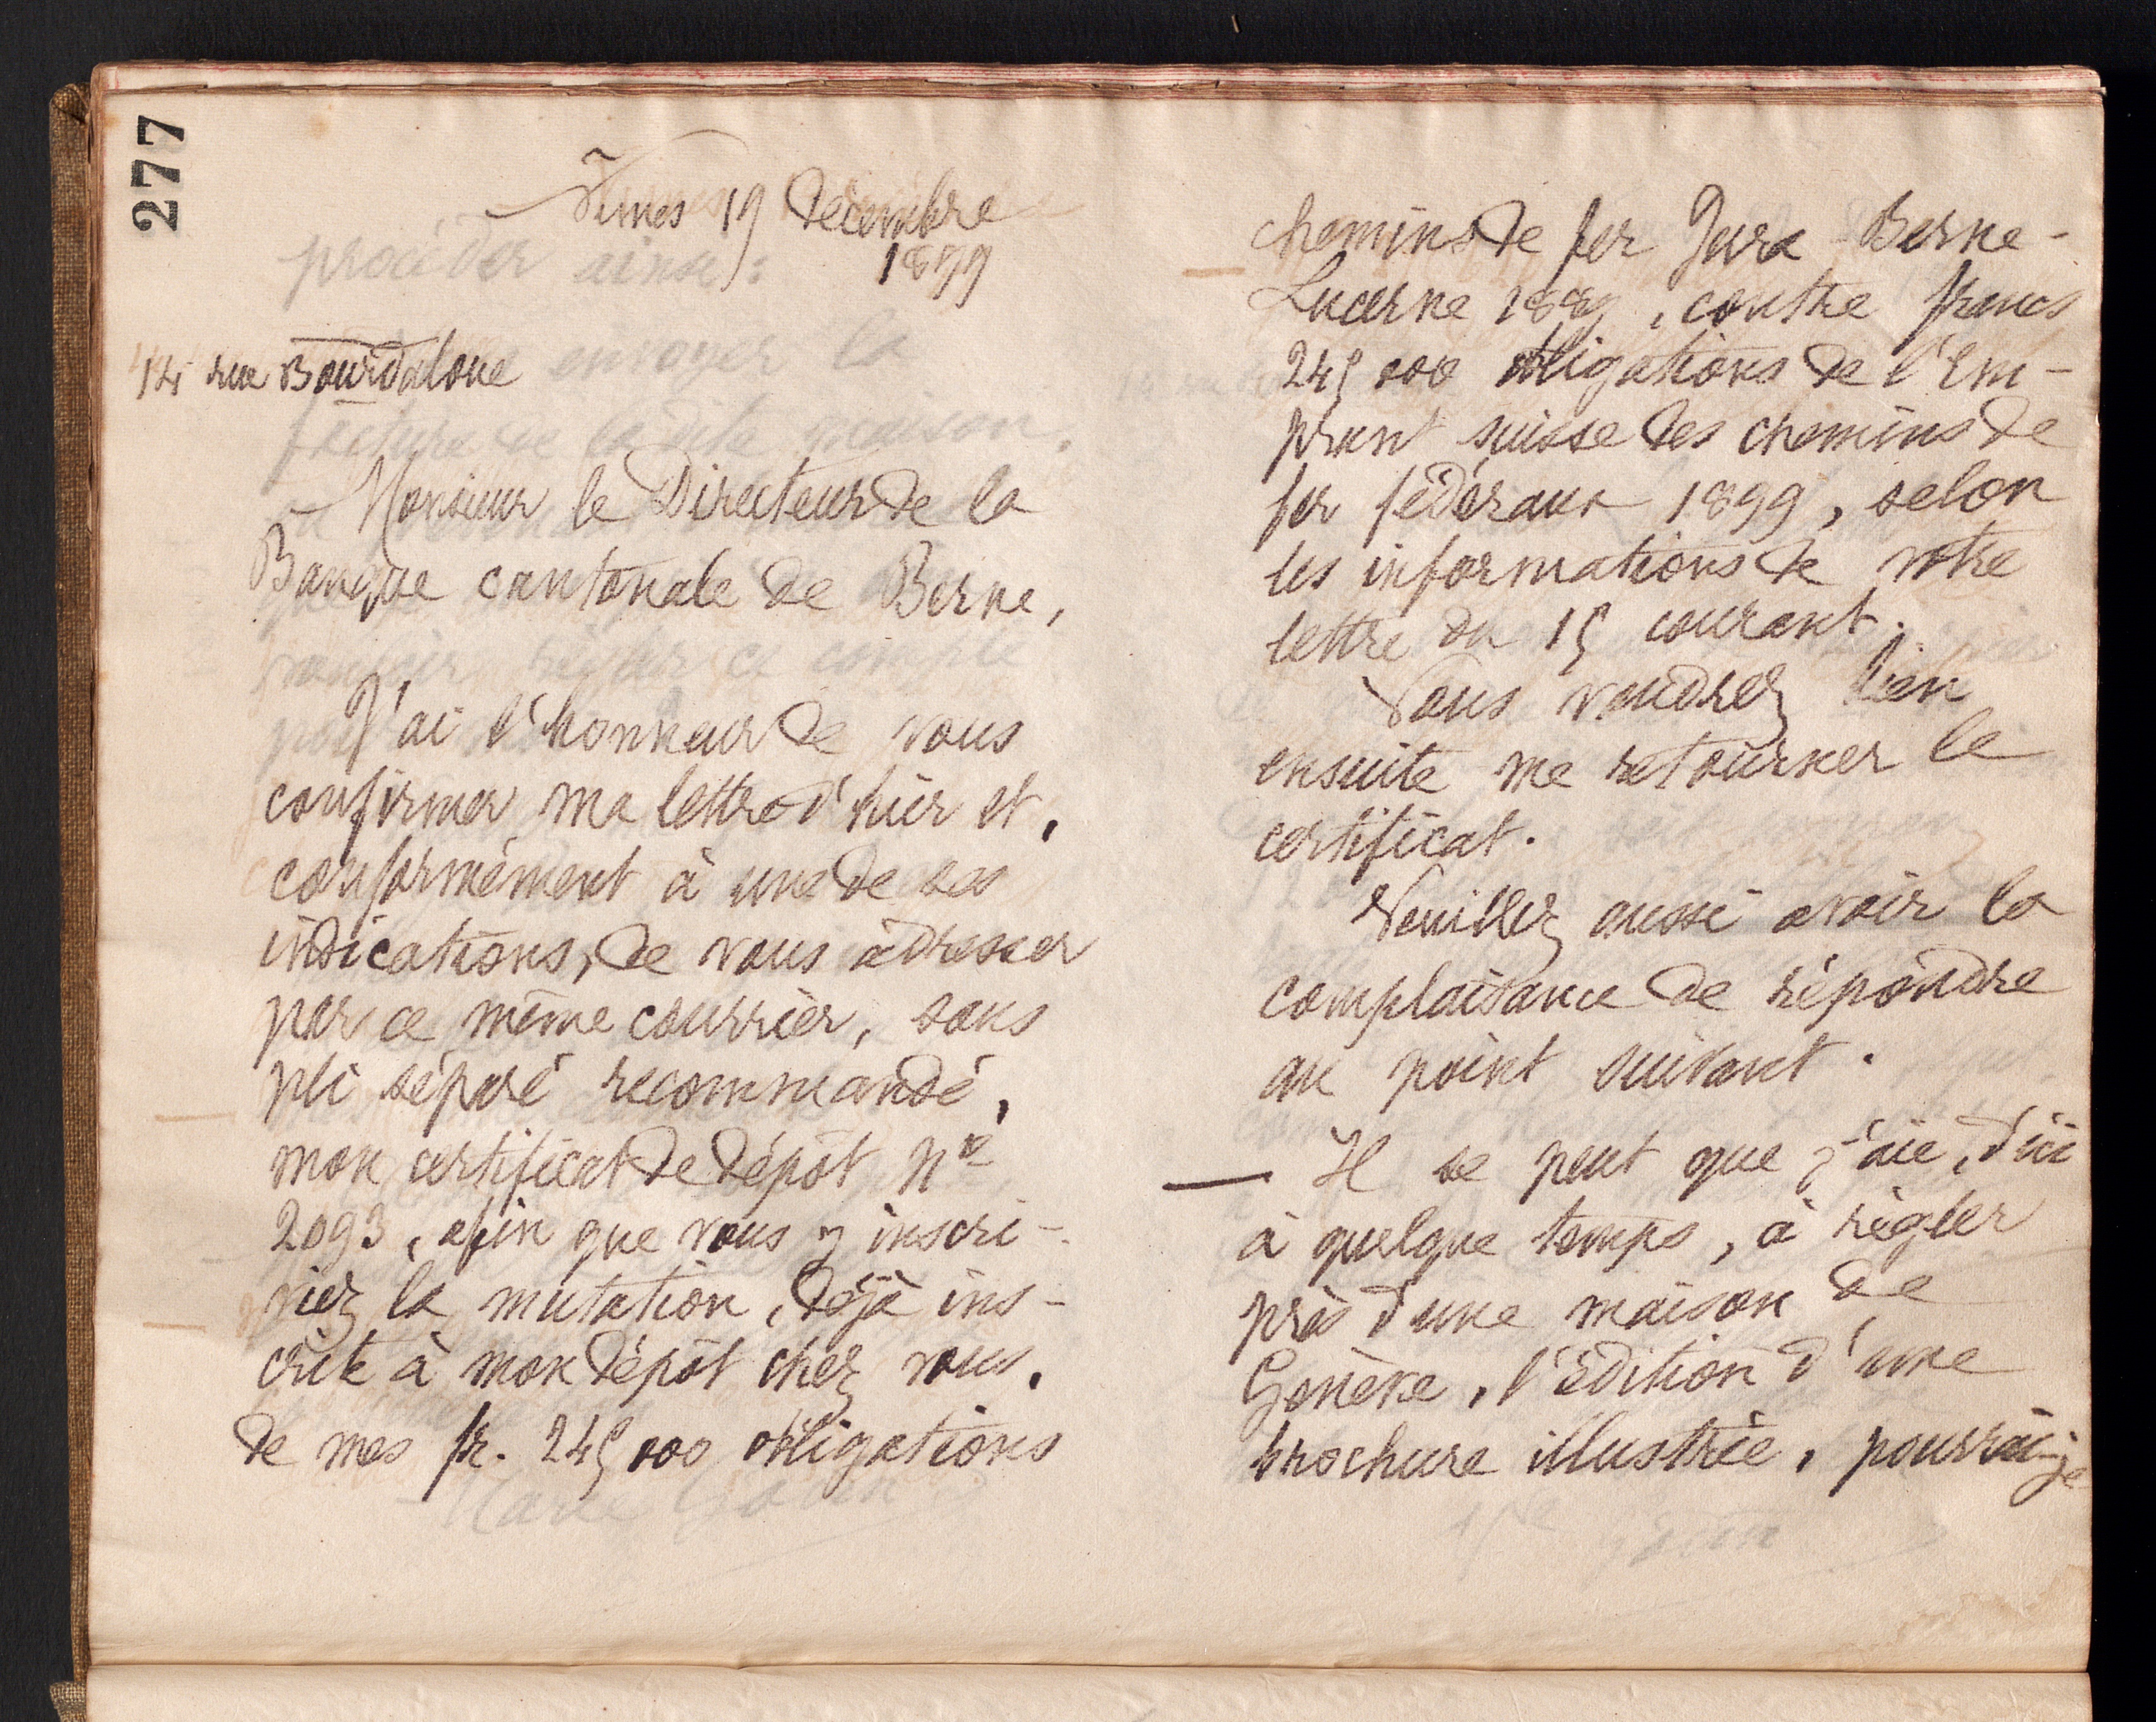 277
Nimes 19 décembre
1899
14 rue Bourdaloue
Monsieur le Directeur de la
Banque cantonale de Berne,
J'ai l'honneur de vous
confirmer ma lettre d'hier et,
conformément à une de ses
indications, de vous adresser
par ce même courrier, sous
pli séparé recommandé,
mon certificat de dépôt No
2093, afin que vous y inscri-
viez la mutation, déjà ins-
crite à mon dépôt chez vous,
de mes fr. 245 000 obligations
chemins de fer Jura-Berne-
Lucerne 1889, contre francs
245 000 obligations de l'Em-
prunt suisse des chemins de
fer fédéraux 1899, selon
les informations de votre
lettre du 15 courant.
Vous voudrez bien
ensuite me retourner le
certificat.
Veuillez aussi avoir la
complaisance de répondre
au point suivant.
— Il se peut que j'aie, d'ici
à quelque temps, à régler
près d'une maison de
Genève, l'édition d'une
brochure illustrée, pourrai-je